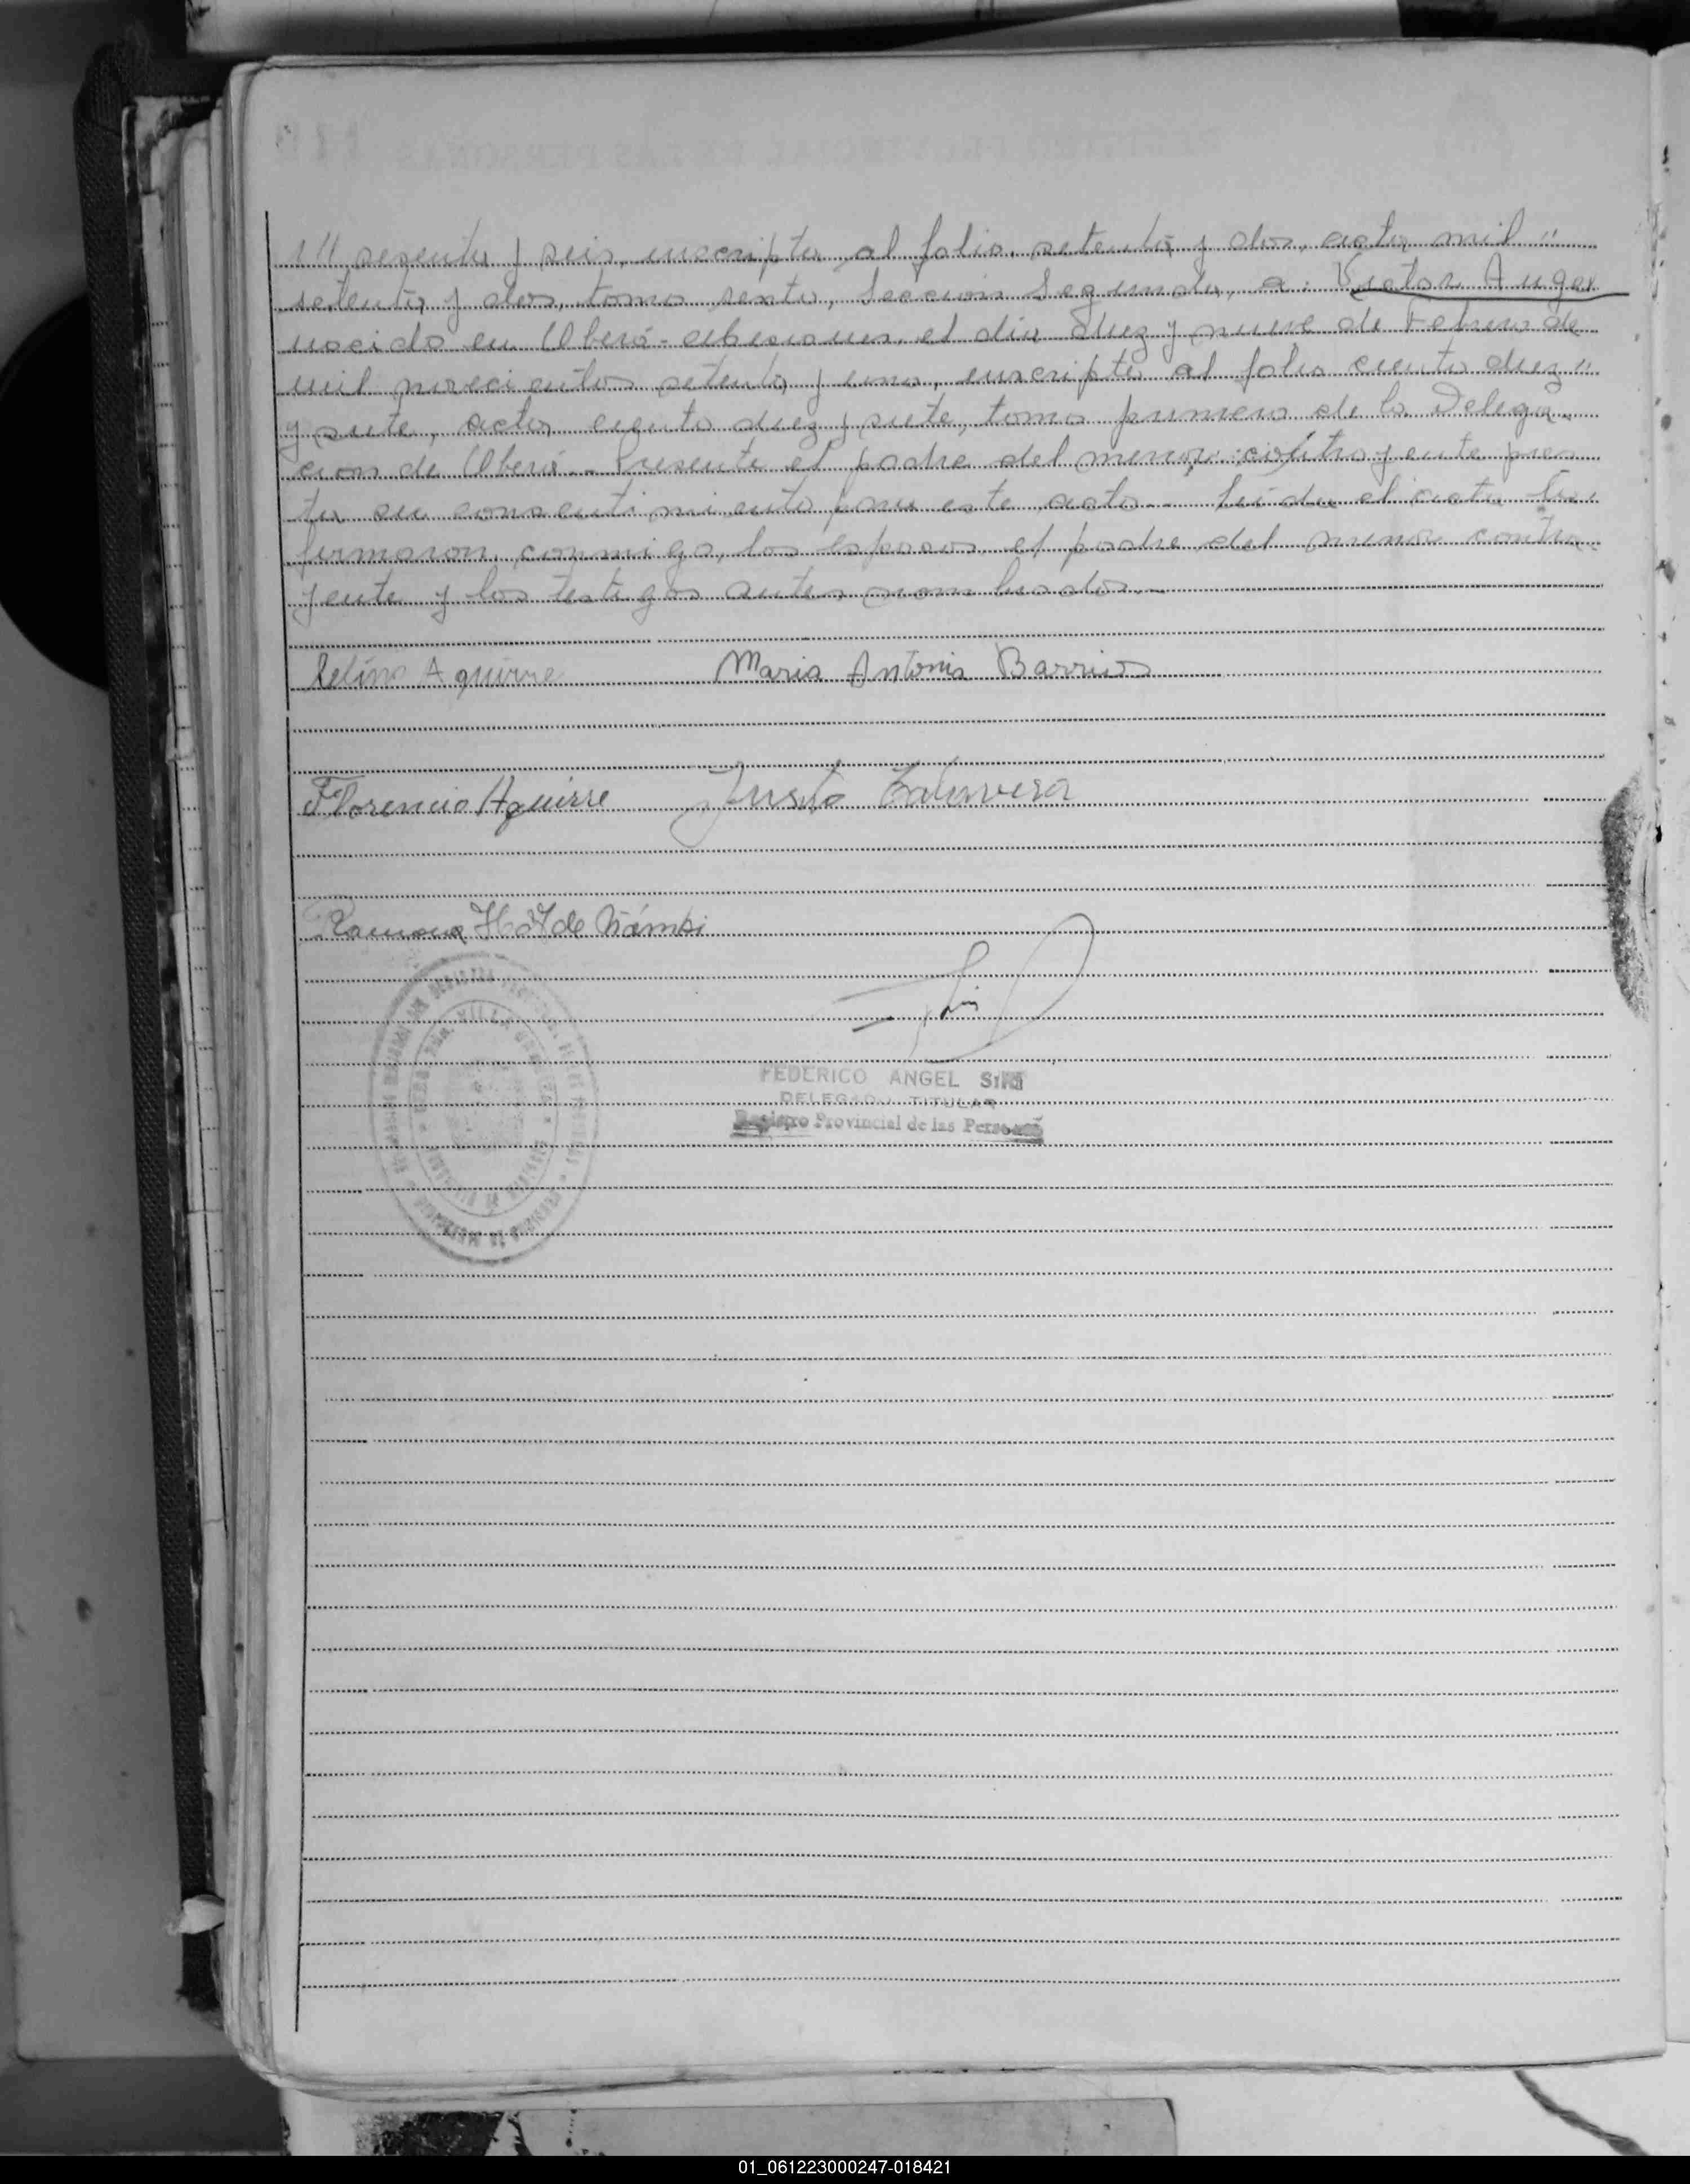 /// sesenta y seis, inscripta al folio, setenta y dos, acta, mil "
setenta y dos, tomo sexto, Sección Segunda, a: Victor Angel
nacido en Oberá - Misiones, el día diez y nueve de Febrero de
mil novecientos setenta y uno, inscripto al folio ciento diez "
y siete, acta, ciento diez y siete, tomo primero de la Delega-
cion de Oberá.- Presente el padre del menor contrayente pres
ta su consentimiento para este acto.- Leída el acta la
firmaron, conmigo, los esposos, el padre del menor contra-
yente y los testigos antes nombrados.-
Celino Aguirre Maria Antonia Barrios
Florencio Aguirre Justo Talavera
Ramona de
FEDERICO ANGEL
DELEGADO TITULAR
Registro Provincial de las Personas
01_061223000247-018421